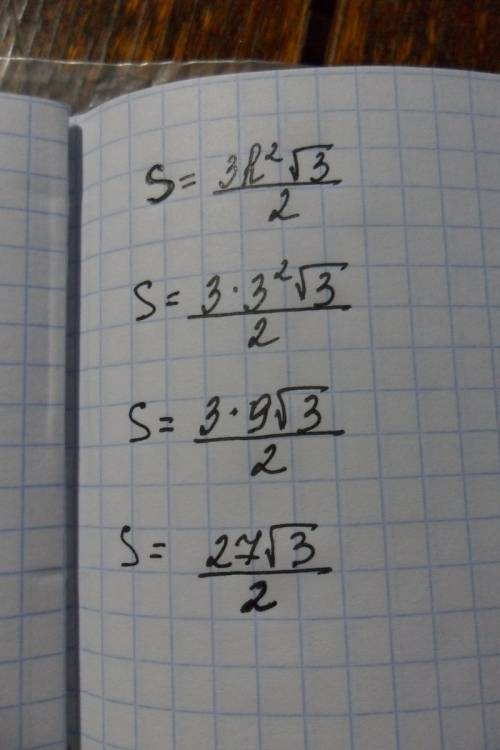 S = 3R²√3 / 2
S = 3·3²√3 / 2
S = 3·9√3 / 2
S = 27√3 / 2